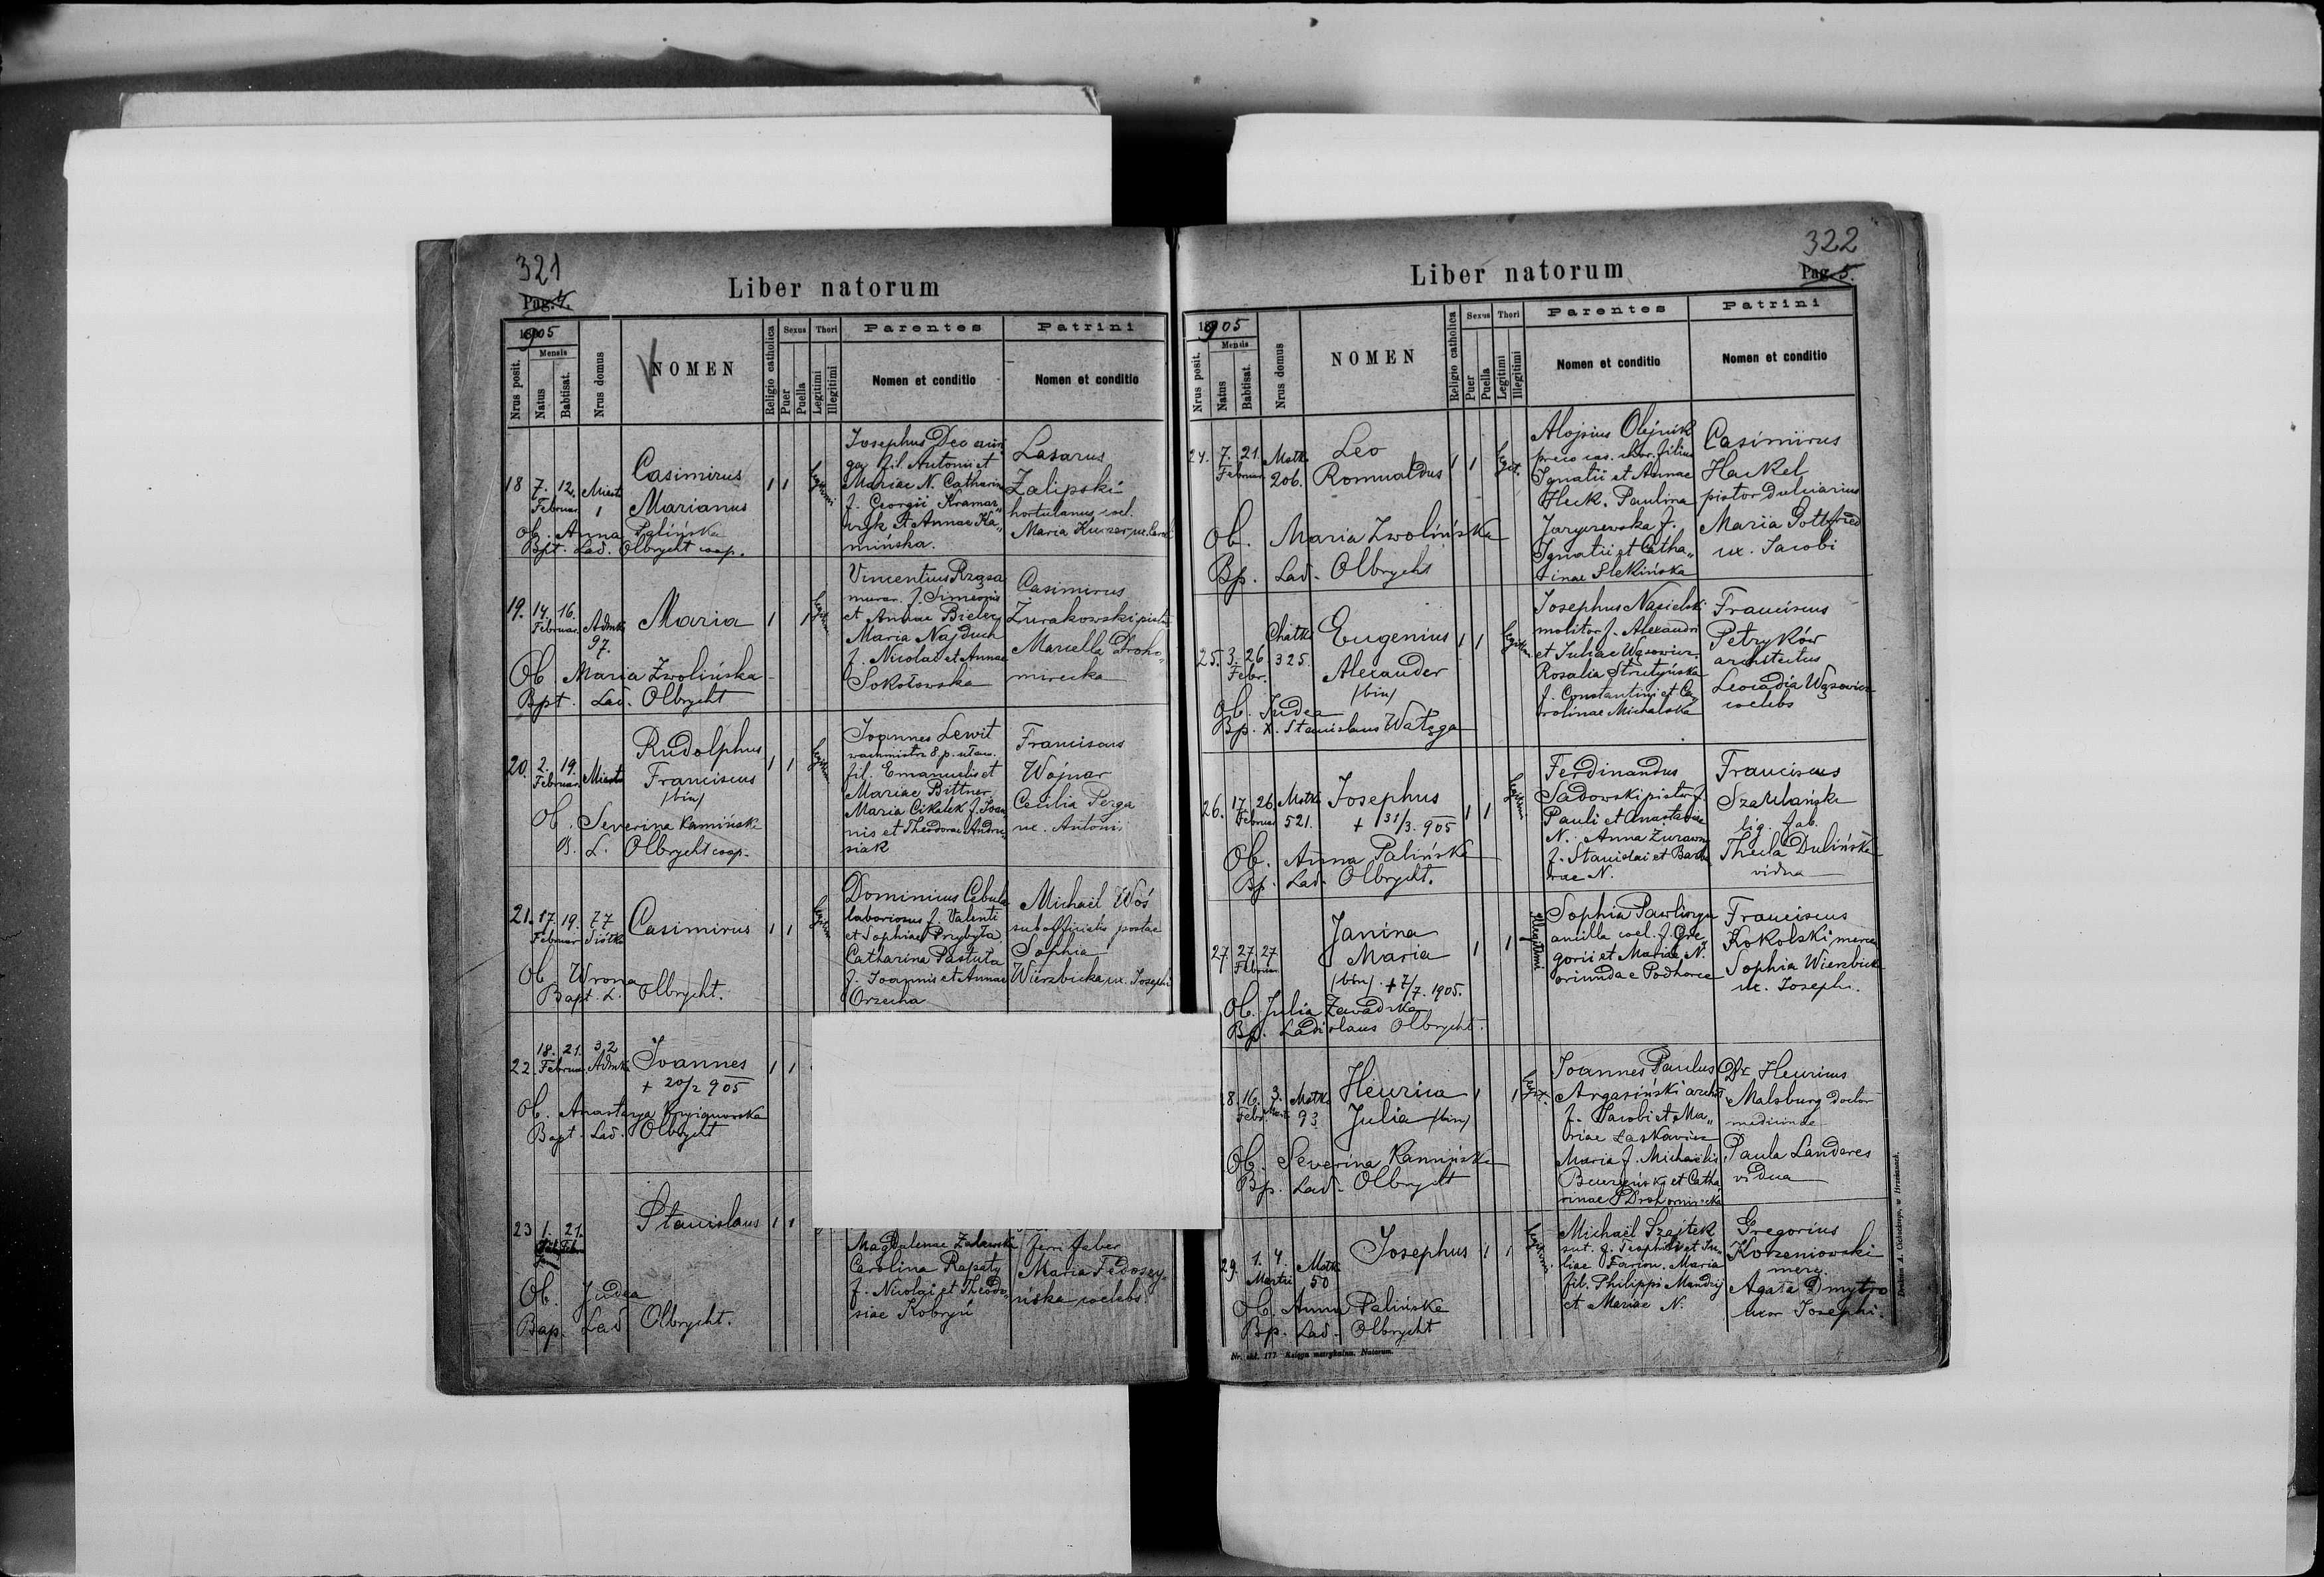 321
Pag. 4.
Liber natorum
1905
Nrus posit.
Mensis
Natus
Babtisat.
Nrus domus
NOMEN
Religio catholica
Sexus
Puer
Puella
Thori
Legitimi
Illegitimi
Parentes
Nomen et conditio
Patrini
Nomen et conditio
18 7. 12. Miasto
Februar 1
Casimirus
Marianus
1 1
Legitimi
Josephus Deo auri
gaj fil. Antonii et
Mariae N. Catharina
f. Georgii Kramar„
czyk et Annae Ka„
mińska.
Lasarus
Zalipski
hortulanus coel.
Maria Kurzer, ux. Caroli
Ob. Anna Palińska
Bpt. Lad. Olbrycht coop.
19. 14. 16.
Februar. Admk
97.
Maria
1 1
Legitim
Vincentius Rząsa
murar. f. Simeonis
et Annae Bielec
Maria Najduch
f. Nicolai et Annae
Sokołowska
Casimirus
Żurakowski pistor
Marcella Droho„
mirecka
Ob. Maria Zwolińska
Bpt. Lad. Olbrycht
20. 2. 19.
Februar. Miasto
Rudolphus
Franciscus
/bin/
1 1
Legitim
Joannes Lewit
wachmistr. 8 p. ułan.
fil. Emanuelis et
Mariae Bittner,
Maria Cikelek f. Joan
nis et Theodorae Andru
siak
Franciscus
Wojnar
Cecilia Perga
ux. Antonii
Ob. Severina Kamińska
B. L. Olbrycht coop.
21. 17. 19. 77
Februar Siółko
Casimirus
1 1
Legitim
Dominicus Cebula
laboriosus f. Valenti
et Sophiae Przybyła,
Catharina Pastuta
f. Joannis et Annae
Orzecha
Michaël Woś
subofficialis postae
Sophia
Wierzbicka ux. Josephi
Ob. Wrona
Bapt. L. Olbrycht.
18. 21. 32
22. Februar. Admk
Joannes
+ 20/2 905
1 1
Ob. Anastazya
Bapt. Lad. Olbrycht
23 1. 21.
Febru
Stanislaus
1 1
Magdalenae Zalewska
Carolina Rapaty
f. Nicolai et Theodo„
siae Kobryń
ferri faber
Maria Fedoszy„
ńska coelebs.
Ob. Judea
Bap. Lad Olbrycht.
322
Pag. 5.
Liber natorum
1905
Nrus posit.
Mensis
Natus
Babtisat.
Nrus domus
NOMEN
Religio catholica
Sexus
Puer
Puella
Thori
Legitimi
Illegitimi
Parentes
Nomen et conditio
Patrini
Nomen et conditio
24. 7. 21. Mstk
Februar. 206.
Leo
Romualdus
1 1
Legit.
Aloysius Olejnik
filius
Ignatii et Annae
Heck. Paulina
Jaryszewska f.
Ignatii et Catha„
rinae Slekińska
Casimirus
Haikel
pistor dulciarius
Maria Gottfried
ux. Jacobi
Ob. Maria Zwolińska
Bp. Lad. Olbrycht
25. 3. 26
Febr.
Chatki
325.
Eugenius
Alexander
/bin/
1 1
Legitim
Josephus Nasielski
molitor f. Alexandri
et Juliae Wąsowicz.
Rosalia Strutyńska
f. Constantini et Ca„
rolinae Michalska
Franciscus
Petryków
architectus
Leocadia Wąsowicz
coelebs
Ob. Judea
Bp. X. Stanislaus Watzga
26. 17. 26 Mstk
Februar 521.
Josephus
+ 31/3. 905
1 1
Legitim
Ferdinandus
Sadowski pistor f.
Pauli et Anastasiae
N. Anna Zuraw
f. Stanislai et Barba
rae N.
Franciscus
Szałańska
lig. fab.
Thecla Dulińska
vidua
Ob. Anna Palińska
Bp. Lad. Olbrycht.
27. 27. 27
Februar
Janina
Maria
/bin/. + 7/7. 1905.
1 1
Illegitimi
Sophia Pawliszyn
ancilla coel. f. Gre„
gorii et Mariae N.
oriunda e Podhorce
Franciscus
Kokolski merca
Sophia Wierzbicka
ux. Joseph.
Ob. Julia Zawadzka
Bp. Ladislaus Olbrycht.
28. 16. 3. Mstk
Febr. Mart. 93
Henrica
Julia /bin/
1 1
Legit.
Joannes Paulus
Argasiński archit.
f. Jacobi et Ma„
riae Laskawicz
Maria f. Michaëlis
Burzyński et Catha
rinae Drohomirecka
Dr. Henricus
Malsburg doctor
medicinae
Paula Landeres
vidua
Ob. Severina Kamińska
Bp. Lad. Olbrycht
29. 1. 4. Mstk
Martii 50
Josephus
1 1
Legitimi
Michaël Szajtek
sut. f. Teophili et Ju„
liae Farion. Maria
fil. Philippi Mandzij
et Mariae N.
Gregorius
Korzeniowski
merc.
Agata Dmytro
uxor Josephi.
Ob. Anna Palińska
Bp. Lad. Olbrycht
Nr. skł. 177 Księga metrykalna. Natorum.
Drukiem A. Cichockiego, w Brzeżanach.